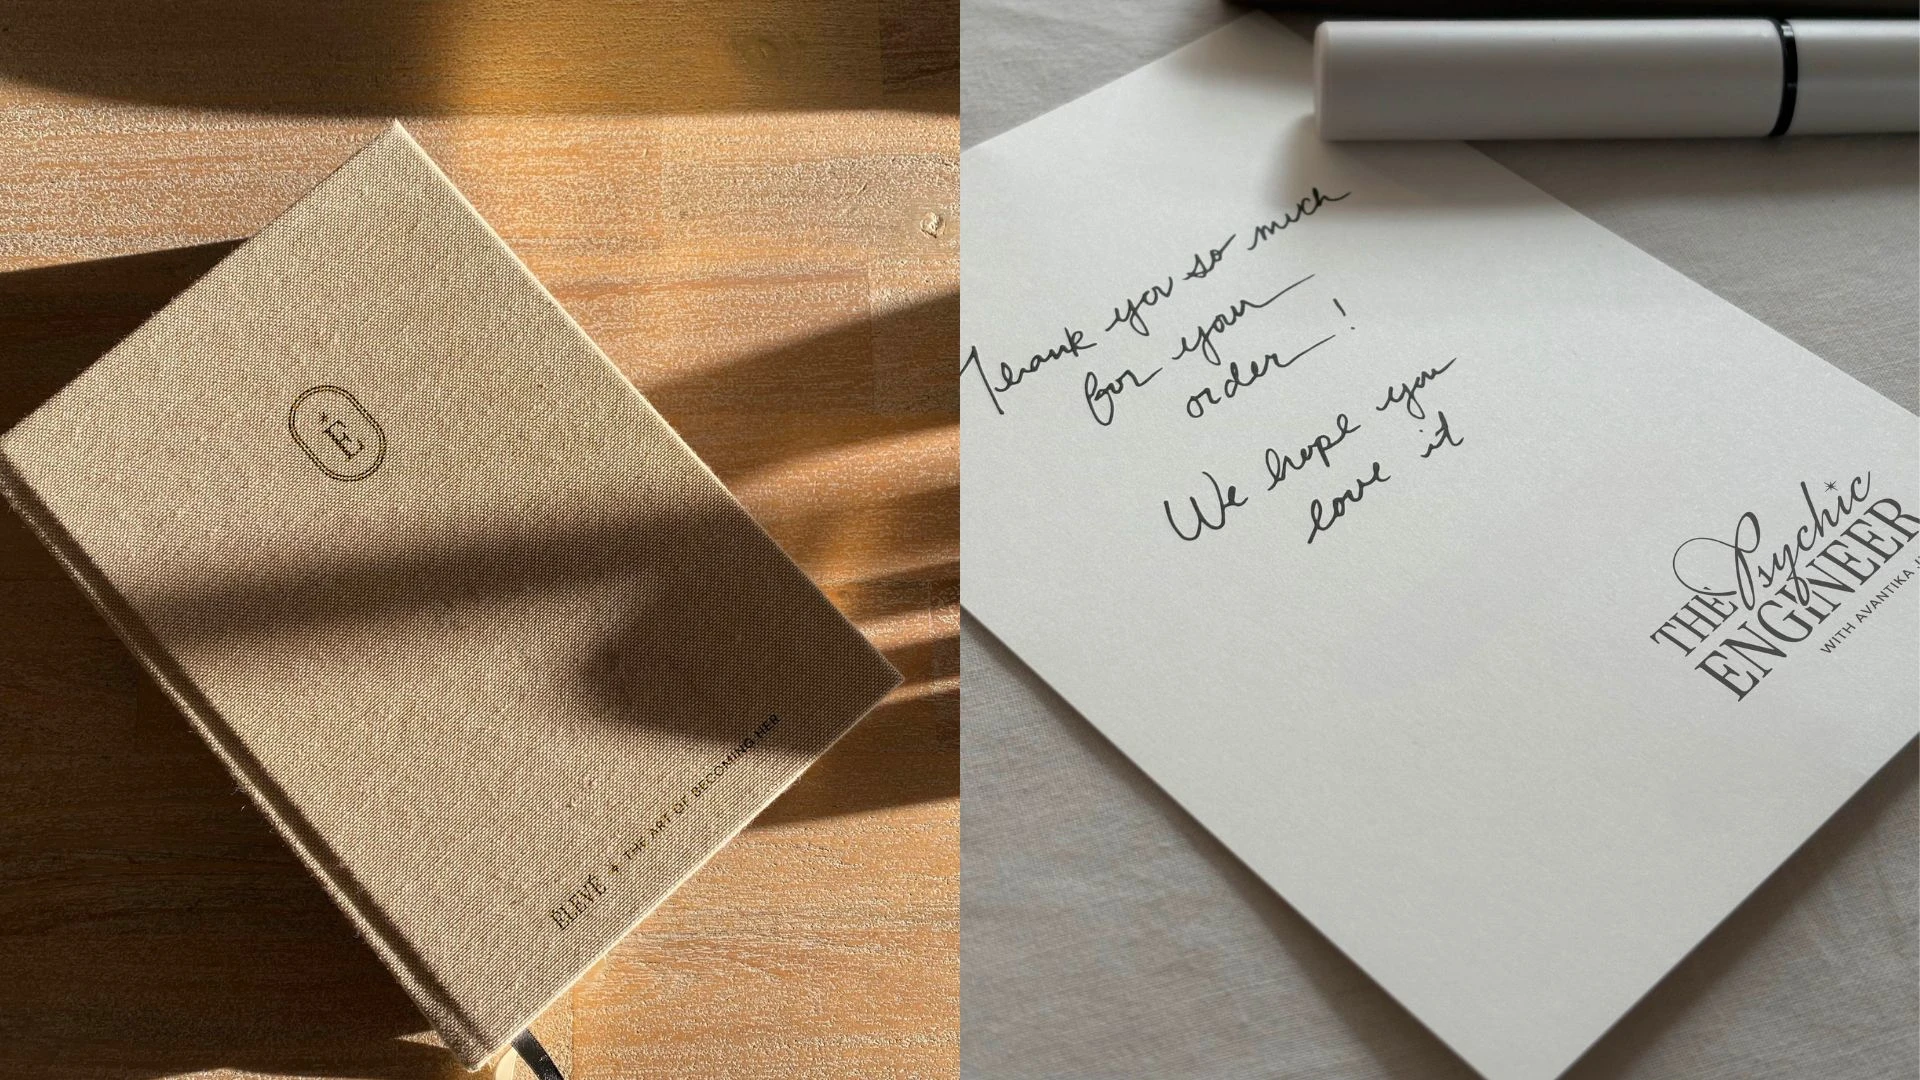 E
ÉLEVÉ ✦ THE ART OF BECOMING HER
Thank you so much
for your
order!
We hope you
love it
THE Psychic
ENGINEER
WITH AVANTIKA